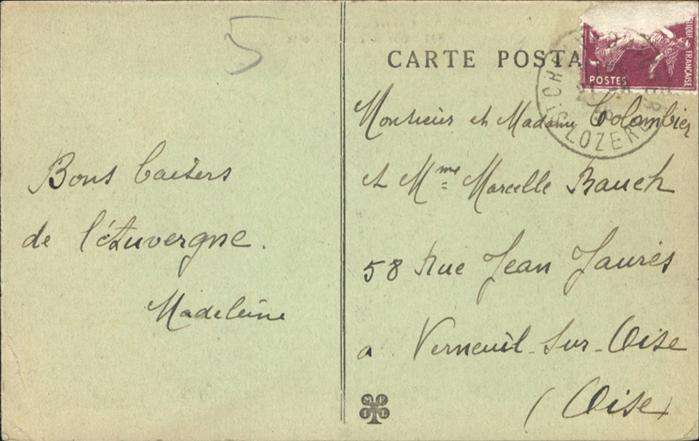 5
CARTE POSTA
POSTES
FRANÇAISE
LOZERE
Bons baisers
de l'Auvergne.
Madeleine
Monsieur et Madame Colombier
et Mme Marcelle Bauch
58 Rue Jean Jaurès
a Verneuil-sur-Oise
(Oise)